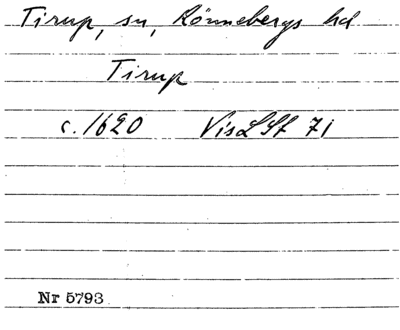 Tirup, sn, Rönnebergs hd
Tirup
c. 1620 VisLSt 71
Nr 5793